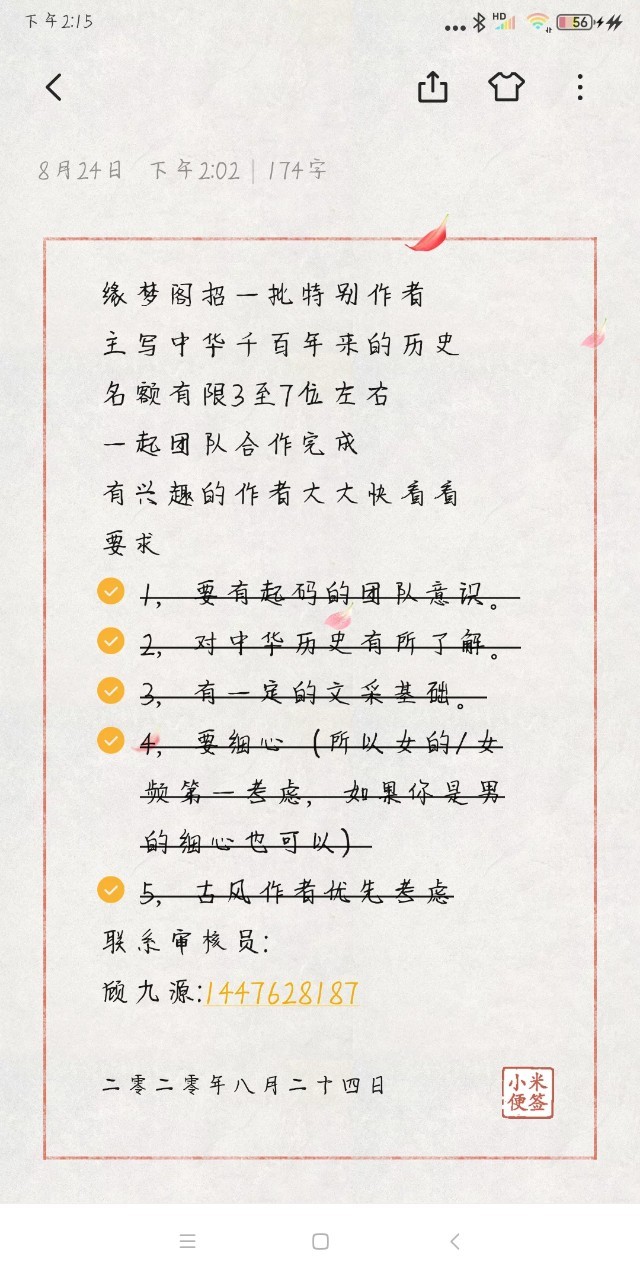 下午2:15
HD
56
8月24日 下午2:02 | 174字
缘梦阁招一批特别作者
主写中华千百年来的历史
名额有限3至7位左右
一起团队合作完成
有兴趣的作者大大快看看
要求
1, 要有起码的团队意识。
2, 对中华历史有所了解。
3, 有一定的文采基础。
4, 要细心 (所以女的/女
频第一考虑, 如果你是男
的细心也可以)
5, 古风作者优先考虑
联系审核员:
顾九源:1447628187
二零二零年八月二十四日
小米
便签